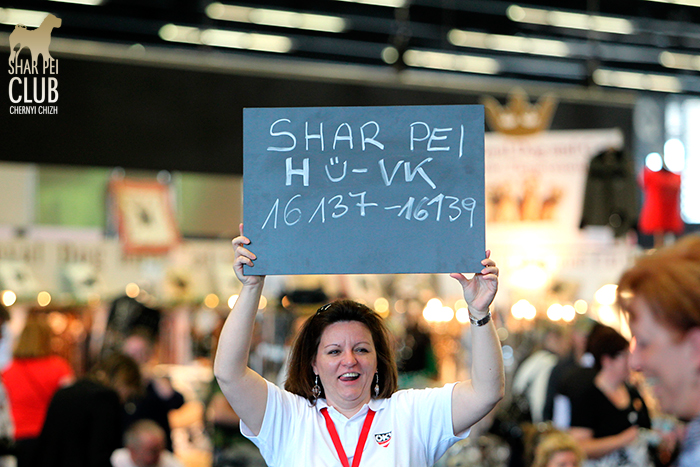 SHAR PEI
CLUB
CHERNYI CHIZH
SHAR PEI
HÜ-VK
16137-16139